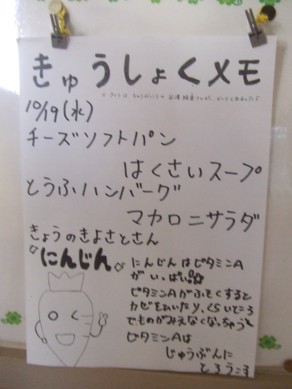 きゅうしょくメモ
10/19(水)
チーズソフトパン
はくさいスープ
とうふハンバーグ
マカロニサラダ
きょうのきよさとさん
にんじん
にんじんはビタミンA
がいっぱい
ビタミンAがふそくすると
カゼをひいたり、くらいところ
でものがみえなくなっちゃうよ
ビタミンAは
じゅうぶんに
とろうニョ